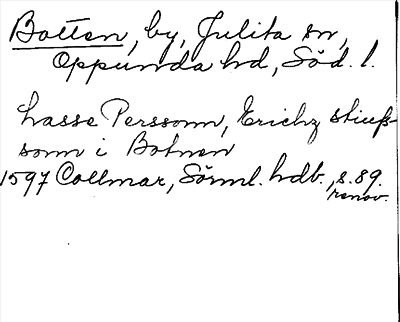 Botten, by, Julita sn,
Oppunda hd, Söd. l.
Lasse Perssonn, Erichz stiufs-
sonn i Botnen
1597 Collmar, Sörml. hdb., s. 89.
renov.